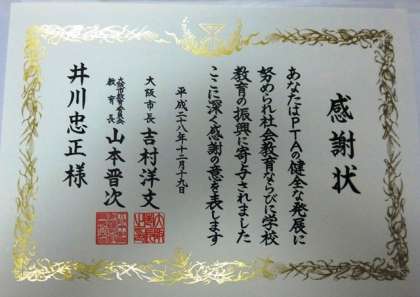 感謝状
あなたはPTAの健全な発展に
努められ社会教育ならびに学校
教育の振興に寄与されました
ここに深く感謝の意を表します
平成二十八年十二月十九日
大阪市長 吉村洋文
大阪市教育委員会
教育長 山本晋次
井川忠正様